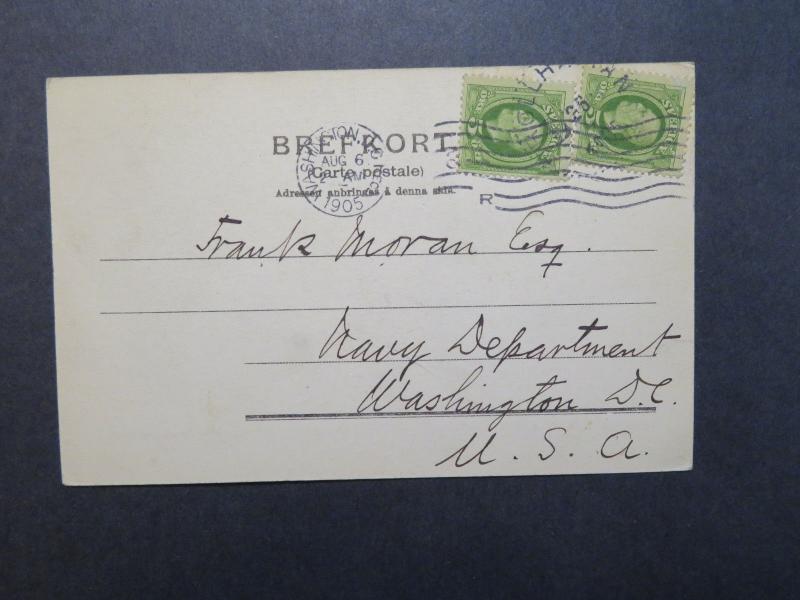 BREFKORT
(Carte postale)
Adressen anbringas å denna sida.
WASHINGTON, D.C.
AUG 6
AM
1905
R
Frank Moran Esq.
Navy Department
Washington D.C.
U. S. A.